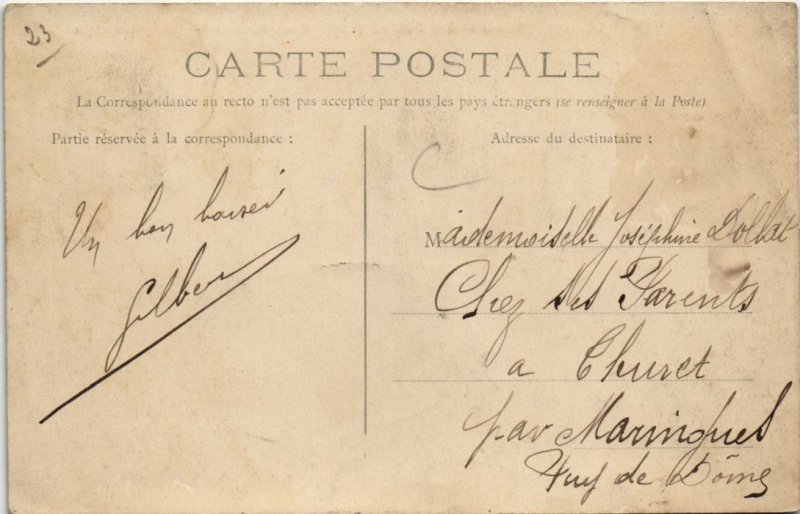 23
CARTE POSTALE
La Correspondance au recto n'est pas acceptée par tous les pays étrangers (se renseigner à la Poste)
Partie réservée à la correspondance :
Adresse du destinataire :
Un bon baiser
Gilbert
Mademoiselle Joséphine Dolhat
Chez ses Parents
a Thuret
par Maringues
Puy de Dôme